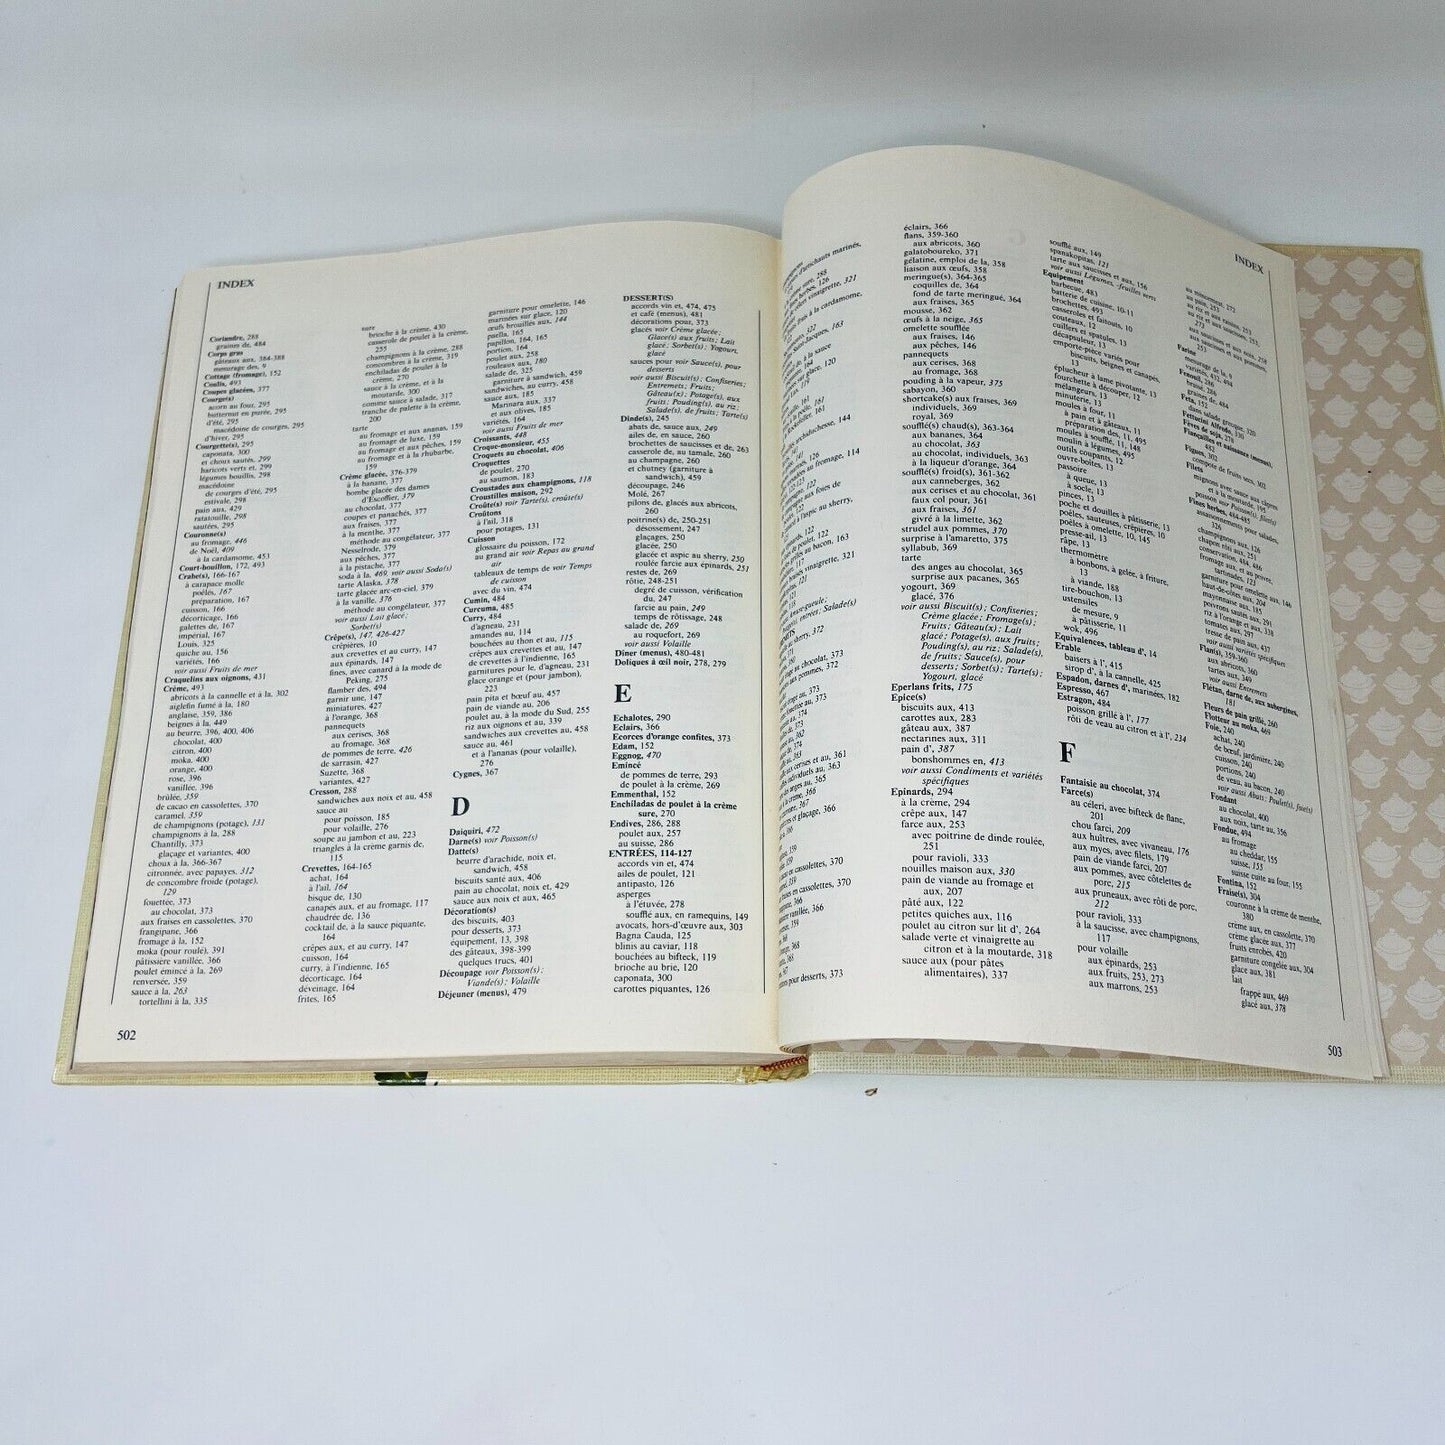 INDEX
Coriandre, 288
graines de, 484
Corps gras
gâteaux aux, 384-388
mesurage des, 9
Cottage (fromage), 152
Coulis, 493
Coupes glacées, 377
Courge(s)
acorn au four, 295
butternut en purée, 295
d'été, 295
macédoine de courges, 295
d'hiver, 295
Courgette(s), 295
caponata, 300
et choux sautés, 299
haricots verts et, 299
légumes bouillis, 298
macédoine
de courges d'été, 295
estivale, 298
pain aux, 429
ratatouille, 298
sautées, 295
Couronne(s)
au fromage, 446
de Noël, 409
à la cardamome, 453
Court-bouillon, 172, 493
Crabe(s), 166-167
à carapace molle
poêlés, 167
préparation, 167
cuisson, 166
décorticage, 166
galettes de, 167
impérial, 167
Louis, 325
quiche au, 156
variétés, 166
voir aussi Fruits de mer
Craquelins aux oignons, 431
Crème, 493
abricots à la cannelle et à la, 302
aiglefin fumé à la, 180
anglaise, 359, 386
beignes à la, 449
au beurre, 396, 400, 406
chocolat, 400
citron, 400
moka, 400
orange, 400
rose, 396
vanillée, 396
brûlée, 359
de cacao en cassolettes, 370
caramel, 359
de champignons (potage), 131
champignons à la, 288
Chantilly, 373
glaçage et variantes, 400
choux à la, 366-367
citronnée, avec papayes, 312
de concombre froide (potage),
129
fouettée, 373
au chocolat, 373
aux fraises en cassolettes, 370
frangipane, 366
fromage à la, 152
moka (pour roulé), 391
pâtissière vanillée, 366
poulet émincé à la, 269
renversée, 359
sauce à la, 263
tortellini à la, 335
sure
brioche à la crème, 430
casserole de poulet à la crème,
255
champignons à la crème, 288
concombres à la crème, 319
enchiladas de poulet à la
crème, 270
sauce à la crème, et à la
moutarde, 300
comme sauce à salade, 317
tranche de palette à la crème,
200
tarte
au fromage et aux ananas, 159
au fromage de luxe, 159
au fromage et aux pêches, 159
au fromage et à la rhubarbe,
159
Crème glacée, 376-379
à la banane, 377
bombe glacée des dames
d'Escoffier, 379
au chocolat, 377
coupes et panachés, 377
aux fraises, 377
à la menthe, 377
méthode au congélateur, 377
Nesselrode, 379
aux pêches, 377
à la pistache, 377
soda à la, 469, voir aussi Soda(s)
tarte Alaska, 378
tarte glacée arc-en-ciel, 379
à la vanille, 376
méthode au congélateur, 377
voir aussi Lait glacé;
Sorbet(s)
Crêpe(s), 147, 426-427
crêpières, 10
aux crevettes et au curry, 147
aux épinards, 147
fines, avec canard à la mode de
Peking, 275
flamber des, 494
garnir une, 147
miniatures, 427
à l'orange, 368
pannequets
aux cerises, 368
au fromage, 368
de pommes de terre, 426
de sarrasin, 427
Suzette, 368
variantes, 427
Cresson, 288
sandwiches aux noix et au, 458
sauce au
pour poisson, 185
pour volaille, 276
soupe au jambon et au, 223
triangles à la crème garnis de,
115
Crevettes, 164-165
achat, 164
à l'ail, 164
bisque de, 130
canapés aux, et au fromage, 117
chaudrée de, 136
cocktail de, à la sauce piquante,
164
crêpes aux, et au curry, 147
cuisson, 164
curry, à l'indienne, 165
décorticage, 164
déveinage, 164
frites, 165
garniture pour omelette, 146
marinées sur glace, 120
œufs brouillés aux, 144
paella, 165
papillon, 164, 165
portion, 164
poulet aux, 258
rouleaux aux, 180
salade de, 325
garniture à sandwich, 459
sandwiches, au curry, 458
sauce aux, 185
Marinara aux, 337
et aux olives, 185
variétés, 164
voir aussi Fruits de mer
Croissants, 448
Croque-monsieur, 455
Croquets au chocolat, 406
Croquettes
de poulet, 270
au saumon, 183
Croustades aux champignons, 118
Croustilles maison, 292
Croûte(s) voir Tarte(s), croûte(s)
Croûtons
à l'ail, 318
pour potages, 131
Cuisson
glossaire du poisson, 172
au grand air voir Repas au grand
air
tableaux de temps de voir Temps
de cuisson
avec du vin, 474
Cumin, 484
Curcuma, 485
Curry, 484
d'agneau, 231
amandes au, 114
bouchées au thon et au, 115
crêpes aux crevettes et au, 147
de crevettes à l'indienne, 165
garnitures pour le, d'agneau, 231
glace orange et (pour jambon),
223
pain pita et bœuf au, 457
pain de viande au, 206
poulet au, à la mode du Sud, 255
riz aux oignons et au, 339
sandwiches aux crevettes au, 458
sauce au, 461
et à l'ananas (pour volaille),
276
Cygnes, 367
D
Daiquiri, 472
Darne(s) voir Poisson(s)
Datte(s)
beurre d'arachide, noix et,
sandwich, 458
biscuits santé aux, 406
pain au chocolat, noix et, 429
sauce aux noix et aux, 465
Décoration(s)
des biscuits, 403
pour desserts, 373
équipement, 13, 398
des gâteaux, 398-399
quelques trucs, 401
Découpage voir Poisson(s);
Viande(s); Volaille
Déjeuner (menus), 479
DESSERT(S)
accords vin et, 474, 475
et café (menus), 481
décorations pour, 373
glacés voir Crème glacée;
Glace(s) aux fruits; Lait
glacé; Sorbet(s); Yogourt,
glacé
sauces pour voir Sauce(s), pour
desserts
voir aussi Biscuit(s); Confiseries;
Entremets; Fruits;
Gâteau(x); Potage(s), aux
fruits; Pouding(s), au riz;
Salade(s), de fruits; Tarte(s)
Dinde(s), 245
abats de, sauce aux, 249
ailes de, en sauce, 260
brochettes de saucisses et de, 263
casserole de, au tamale, 260
au champagne, 260
et chutney (garniture à
sandwich), 459
découpage, 246
Molé, 267
pilons de, glacés aux abricots,
260
poitrine(s) de, 250-251
désossement, 247
glaçages, 250
glacée, 250
glacée et aspic au sherry, 250
roulée farcie aux épinards, 251
restes de, 269
rôtie, 248-251
degré de cuisson, vérification
du, 247
farcie au pain, 249
temps de rôtissage, 248
salade de, 269
au roquefort, 269
voir aussi Volaille
Dîner (menus), 480-481
Doliques à œil noir, 278, 279
E
Echalotes, 290
Eclairs, 366
Ecorces d'orange confites, 373
Edam, 152
Eggnog, 470
Emincé
de pommes de terre, 293
de poulet à la crème, 269
Emmenthal, 152
Enchiladas de poulet à la crème
sure, 270
Endives, 286, 288
poulet aux, 257
au suisse, 286
ENTRÉES, 114-127
accords vin et, 474
ailes de poulet, 121
antipasto, 126
asperges
à l'étuvée, 278
soufflé aux, en ramequins, 149
avocats, hors-d'œuvre aux, 303
Bagna Cauda, 125
blinis au caviar, 118
bouchées au bifteck, 119
brioche au brie, 120
caponata, 300
carottes piquantes, 126
502
éclairs, 366
flans, 359-360
aux abricots, 360
galatoboureko, 371
gélatine, emploi de la, 358
liaison aux œufs, 358
meringue(s), 364-365
coquilles de, 364
fond de tarte meringué, 364
aux fraises, 365
mousse, 362
œufs à la neige, 365
omelette soufflée
aux fraises, 146
aux pêches, 146
pannequets
aux cerises, 368
au fromage, 368
pouding à la vapeur, 375
sabayon, 360
shortcake(s) aux fraises, 369
individuels, 369
royal, 369
soufflé(s) chaud(s), 363-364
aux bananes, 364
au chocolat, 363
au chocolat, individuels, 363
à la liqueur d'orange, 364
soufflé(s) froid(s), 361-362
aux canneberges, 362
aux cerises et au chocolat, 361
faux col pour, 361
aux fraises, 361
givré à la limette, 362
strudel aux pommes, 370
surprise à l'amaretto, 375
syllabub, 369
tarte
des anges au chocolat, 365
surprise aux pacanes, 365
yogourt, 369
glacé, 376
voir aussi Biscuit(s); Confiseries;
Crème glacée; Fromage(s);
Fruits; Gâteau(x); Lait
glacé; Potage(s), aux fruits;
Pouding(s), au riz; Salade(s),
de fruits; Sauce(s), pour
desserts; Sorbet(s); Tarte(s);
Yogourt, glacé
Eperlans frits, 175
Epice(s)
biscuits aux, 413
carottes aux, 283
gâteau aux, 387
nectarines aux, 311
pain d', 387
bonshommes en, 413
voir aussi Condiments et variétés
spécifiques
Epinards, 294
à la crème, 294
crêpe aux, 147
farce aux, 253
avec poitrine de dinde roulée,
251
pour ravioli, 333
nouilles maison aux, 330
pain de viande au fromage et
aux, 207
pâté aux, 122
petites quiches aux, 116
poulet au citron sur lit d', 264
salade verte et vinaigrette au
citron et à la moutarde, 318
sauce aux (pour pâtes
alimentaires), 337
soufflé aux, 149
spanakopitas, 121
tarte aux saucisses et aux, 156
voir aussi Légumes, -feuilles verts
Equipement
barbecue, 483
batterie de cuisine, 10-11
brochettes, 493
casseroles et faitouts, 10
couteaux, 12
cuillers et spatules, 13
décapsuleur, 13
emporte-pièce variés pour
biscuits, beignes et canapés,
13
éplucheur à lame pivotante, 13
fourchette à découper, 12
mélangeurs, 13
minuterie, 13
moules à four, 11
à pain et à gâteaux,
préparation des, 11, 495
moules à soufflé, 11, 148
moulin à légumes, 495
outils coupants, 12
ouvre-boîtes, 13
passoire
à queue, 13
à socle, 13
pinces, 13
poche et douilles à pâtisserie, 13
poêles, sauteuses, crêpières, 10
poêles à omelette, 10, 145
presse-ail, 13
râpe, 13
thermomètre
à bonbons, à gelée, à friture,
13
à viande, 188
tire-bouchon, 13
ustensiles
de mesure, 9
à pâtisserie, 11
wok, 496
Equivalences, tableau d', 14
Erable
baisers à l', 415
sirop d', à la cannelle, 425
Espadon, darnes d', marinées, 182
Espresso, 467
Estragon, 484
poisson grillé à l', 177
rôti de veau au citron et à l', 234
F
Fantaisie au chocolat, 374
Farce(s)
au céleri, avec bifteck de flanc,
201
chou farci, 209
aux huîtres, avec vivaneau, 176
aux myes, avec filets, 179
pain de viande farci, 207
aux pommes, avec côtelettes de
porc, 215
aux pruneaux, avec rôti de porc,
212
pour ravioli, 333
à la saucisse, avec champignons,
117
pour volaille
aux épinards, 253
aux fruits, 253, 273
aux marrons, 253
INDEX
Farine
mesurage de la, 9
Fenouil, 286
Feta, 152
Fettucini Alfredo, 330
Fèves de soja, 278
Figues, 302
compote de fruits secs, 302
Filets
Fines herbes, 484-485
assaisonnements pour salades,
326
champignons aux, 126
chapon rôti aux, 251
garniture pour omelette aux, 146
haut-de-côtes aux, 204
mayonnaise aux, 185
poivrons sautés aux, 291
riz à l'orange et aux, 338
tomates aux, 297
tresse de pain aux, 437
voir aussi variétés spécifiques
Flan(s), 359-360
aux abricots, 360
tartelettes aux, 349
voir aussi Entremets
Flétan, darne de, aux aubergines,
181
Fleurs de pain grillé, 260
Flotteur au moka, 469
Foie, 240
achat, 240
de bœuf, jardinière, 240
cuisson, 240
portions, 240
de veau, au bacon, 240
voir aussi Abats; Poulet(s), foie(s)
Fondant
au chocolat, 400
aux noix, tarte au, 356
Fondue, 494
au fromage
au cheddar, 155
suisse, 155
suisse cuite au four, 155
Fontina, 152
Fraise(s), 304
couronne à la crème de menthe,
380
crème aux, en cassolettes, 370
crème glacée aux, 377
fruits enrobés, 420
garniture congelée aux, 304
glace aux, 381
lait
frappé aux, 469
glacé aux, 378
503